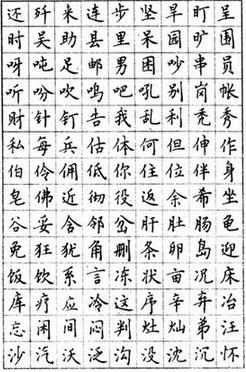 还歼来连步坚旱盯呈
时吴助县里呆园旷围
呀吨足邮男困吵串员
听吩吹呜吧吼别岗帐
财针钉告我乱利秃秀
私每兵估体何但伸作
伯伶佣低你住位伴身
皂佛近彻役返余希坐
谷妥含邻岔肝肚肠龟
免狂犹角删条卵岛迎
饭饮系言冻状亩况床
库疗应冷这序辛弃冶
忘闲间闷判灶灿弟汪
沙汽沃泛沟没沈沉怀